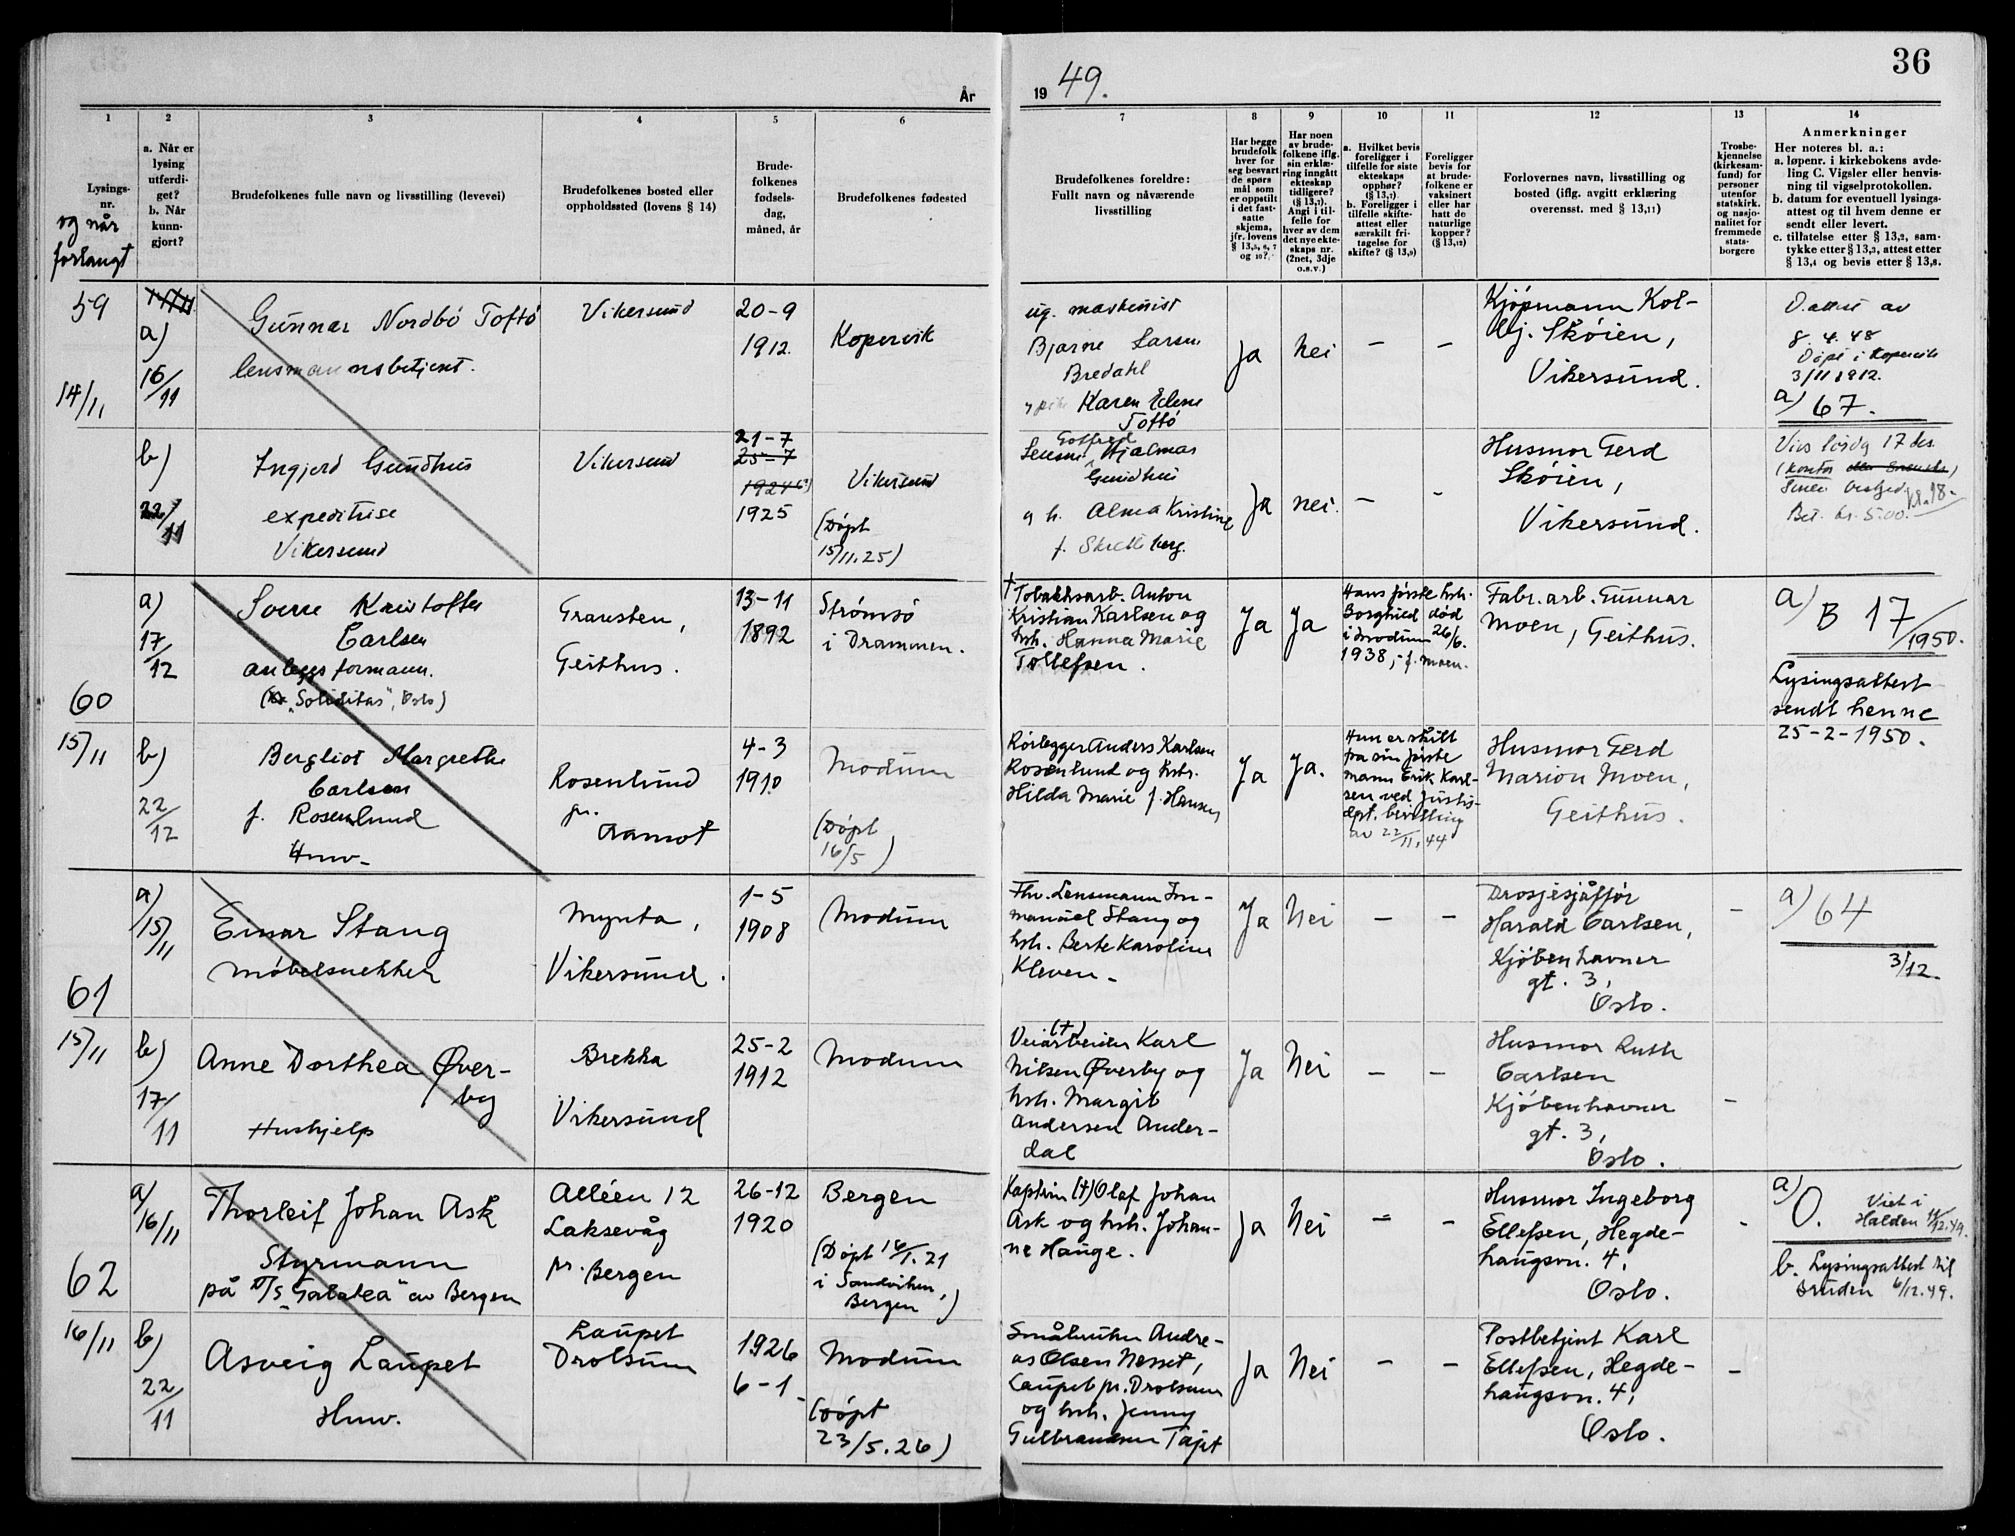 36
År
19 49.
1
2
3
4
5
6
7
8
9
10
11
12
13
14
Lysings-
nr.
og når
forlangt
a. Når er
lysing
utferdi-
get?
b. Når
kunn-
gjort?
Brudefolkenes fulle navn og livsstilling (levevei)
Brudefolkenes bosted eller
oppholdssted (lovens § 14)
Brude-
folkenes
fødsels-
dag,
måned, år
Brudefolkenes fødested
Brudefolkenes foreldre:
Fullt navn og nåværende
livsstilling
Har begge
brudefolk
hver for
seg besvart
de spørs
mål som
er oppstilt
i det fast-
satte
skjema,
jfr. lovens
§ 13,5, 6, 7
og 10?
Har noen
av brude-
folkene iflg.
sin erklæ-
ring inngått
ekteskap
tidligere?
(§ 13,7).
Angi i til-
felle for
hver av dem
det nye ekte-
skaps nr.
(2net, 3dje
o.s.v.)
a. Hvilket bevis
foreligger i
tilfelle for siste
ekteskaps
opphør?
(§ 13,7)
b. Foreligger i
tilfelle skifte-
attest eller
særskilt fri-
tagelse for
skifte? (§ 13,9)
Foreligger
bevis for
at brude-
folkene er
vaksinert
eller har
hatt de
naturlige
kopper?
(§ 13,12)
Forlovernes navn, livsstilling og
bosted (iflg. avgitt erklæring
overensst. med § 13,11)
Trosbe-
kjennelse
(kirkesam-
fund) for
personer
utenfor
statskirk.
og nasjo-
nalitet for
fremmede
stats-
borgere
Anmerkninger
Her noteres bl. a.:
a. løpenr. i kirkebokens avde-
ling C. Vigsler eller henvis-
ning til vigselprotokollen.
b. datum for eventuell lysings-
attest og til hvem denne er
sendt eller levert.
c. tillatelse etter § 13,2, sam-
tykke etter § 13,3, attest etter
§ 13,4 og bevis etter § 13,8.
59
14/11
a)
16/11
Gunnar Nordbö Toftö
lensmannsbetjent.
Vikersund
20-9
1912.
Kopervik
ug. maskinist
Bjarne Larsen
Bredahl
Karen Elene
Toftö
Ja
Nei
–
–
Kjöpmann Kol-
bj. Sköien,
Vikersund.
8.4.48
Döpt i Kopervik
3/11 1912.
a) 67.
b)
22/11
Ingjerd Gundhus
expeditrise
Vikersund
Vikersund
21-7
25-7
1924
1925
Vikersund
(Döpt
15/11.25)
Gotfred
Hjalmar
Gundhus
og h. Alma Kristine
f.
Ja
nei.
–
-
Husmor Gerd
Sköien,
Vikersund.
17 des
Bet. kr. 5.00.
kl. 18.-
60
15/11
a)
17/12
Sverre Kristoffer
Carlsen
anleggsformann.
("Soliditas", Oslo)
Gransten,
Geithus.
13-11
1892
Strömsö
i Drammen.
† Tobakksarb. Anton
Kristian Karlsen og
hsh. Hanna Marie
Tollefsen.
Ja
Ja
Hans første hsh.
Borghild död
i Modum 26/6.
1938, f. Moen.
Fabr. arb. Gunnar
Moen, Geithus.
a) B 17/1950.
Lysingsattest
sendt henne
25-2-1950.
b)
22/12
Bergliot Margrethe
Carlsen
f. Rosenlund
Hmv.
Rosenlund
pr.
Aamot
4-3
1910
Modum
(Döpt
16/5)
Rörlegger Anders Karlsen
Rosenlund og hsh.
Hilda Marie f. Hansen
Ja
Ja.
Hun er skilt
fra sin første
mann Erik Karl-
sen ved Justis-
dpt. bevilling
av 22/11.44
Husmor Gerd
Marion Moen,
Geithus.
61
15/11
a)
15/11
Einar Stang
Möbelsnekker
Mynta,
Vikersund.
1-5
1908
Modum
Fhv. Lensmann Im-
manuel Stang og
hsh. Berte Karoline
Kleven.
Ja
Nei
–
–
Drosjesjåfför
Harald Carlsen,
Kjöbenhavner
gt. 3,
Oslo.
–
a) 64
3/12.
b)
17/11
Anne Dorthea Øver-
by
Hushjelp
Brekka
Vikersund
25-2
1912
Modum
Veiarbeider (†) Karl
Nilsen Øverby og
hsh. Margit
Andersen Ander-
dal
Ja
Nei
–
–
Husmor Ruth
Carlsen
Kjöbenhavner
gt. 3,
Oslo.
–
62
16/11
a)
16/11
Thorleif Johan Ask
Styrmann
på D/S "Galatea" av Bergen
Alléen 12
Laksevåg
pr. Bergen
26-12
1920
Bergen
(Döpt 16/1.21
i Sandviken,
Bergen)
Kaptein (†) Olaf Johan
Ask og hsh. Johan-
ne Hauge.
Ja
Nei
–
–
Husmor Ingeborg
Ellefsen, Hegde-
haugsvn. 4,
Oslo.
–
a) O. Viet i
Halden 11/12.49.
b. Lysingsattest til
bruden 6/12.49.
b)
22/11
Asveig Laupet
Hmv.
Laupet
Drolsum
1926
6-1
Modum
(Döpt
23/5.26)
Småbruker Andre-
as Olsen Nesset,
Laupet pr. Drolsum
og hsh. Jenny
Gulbrandsen Tajet
Ja
Nei
–
–
Postbetjent Karl
Ellefsen, Hegde-
haugsvn. 4,
Oslo.
–